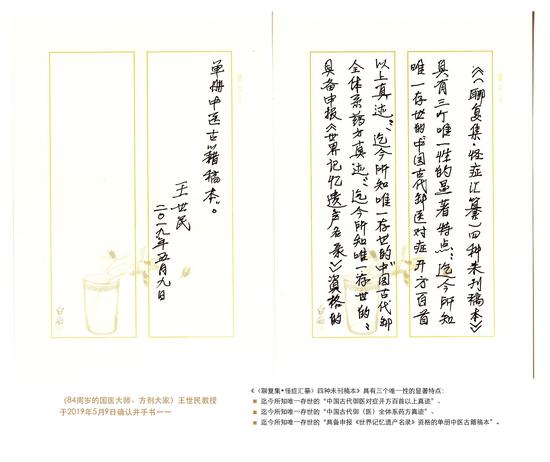 《〈聊复集·怪症汇纂〉四种未刊稿本》
具有三个唯一性的显著特点：迄今所知
唯一存世的“中国古代御医对症开方百首
以上真迹”、迄今所知唯一存世的“中国古代御
全体系药方真迹”、迄今所知唯一存世的“
具备申报《世界记忆遗产名录》资格的
单册中医古籍稿本”。
王世民
二〇一九年五月九日
（84周岁的国医大师、方剂大家）王世民教授
于2019年5月9日确认并手书一一
《〈聊复集•怪症汇纂〉四种未刊稿本》具有三个唯一性的显著特点：
迄今所知唯一存世的“中国古代御医对症开方百首以上真迹”、
迄今所知唯一存世的“中国古代御（医）全体系药方真迹”、
迄今所知唯一存世的“具备申报《世界记忆遗产名录》资格的单册中医古籍稿本”。